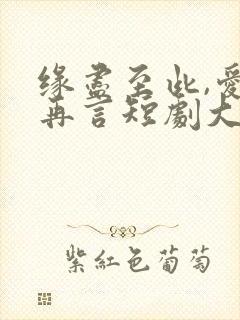 缘尽至此,爱
再言短剧大
紫红色葡萄